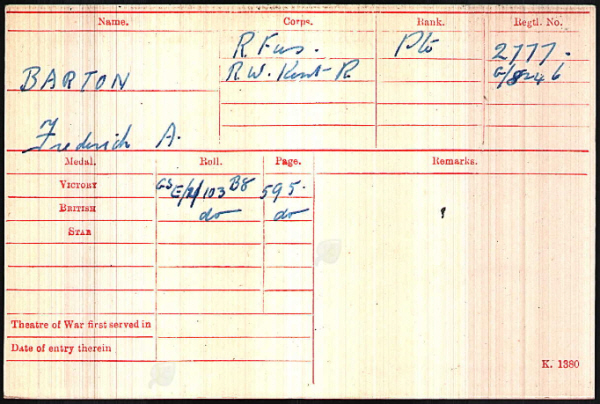 Name. Corps. Rank. Regtl. No.
R Fus. Pte 2777.
BARTON R.W. Kent R G/8246
Frederick A.
Medal. Roll. Page. Remarks.
VICTORY GS E/2/103 B8 595.
BRITISH do do
STAR
Theatre of War first served in
Date of entry therein
K. 1380